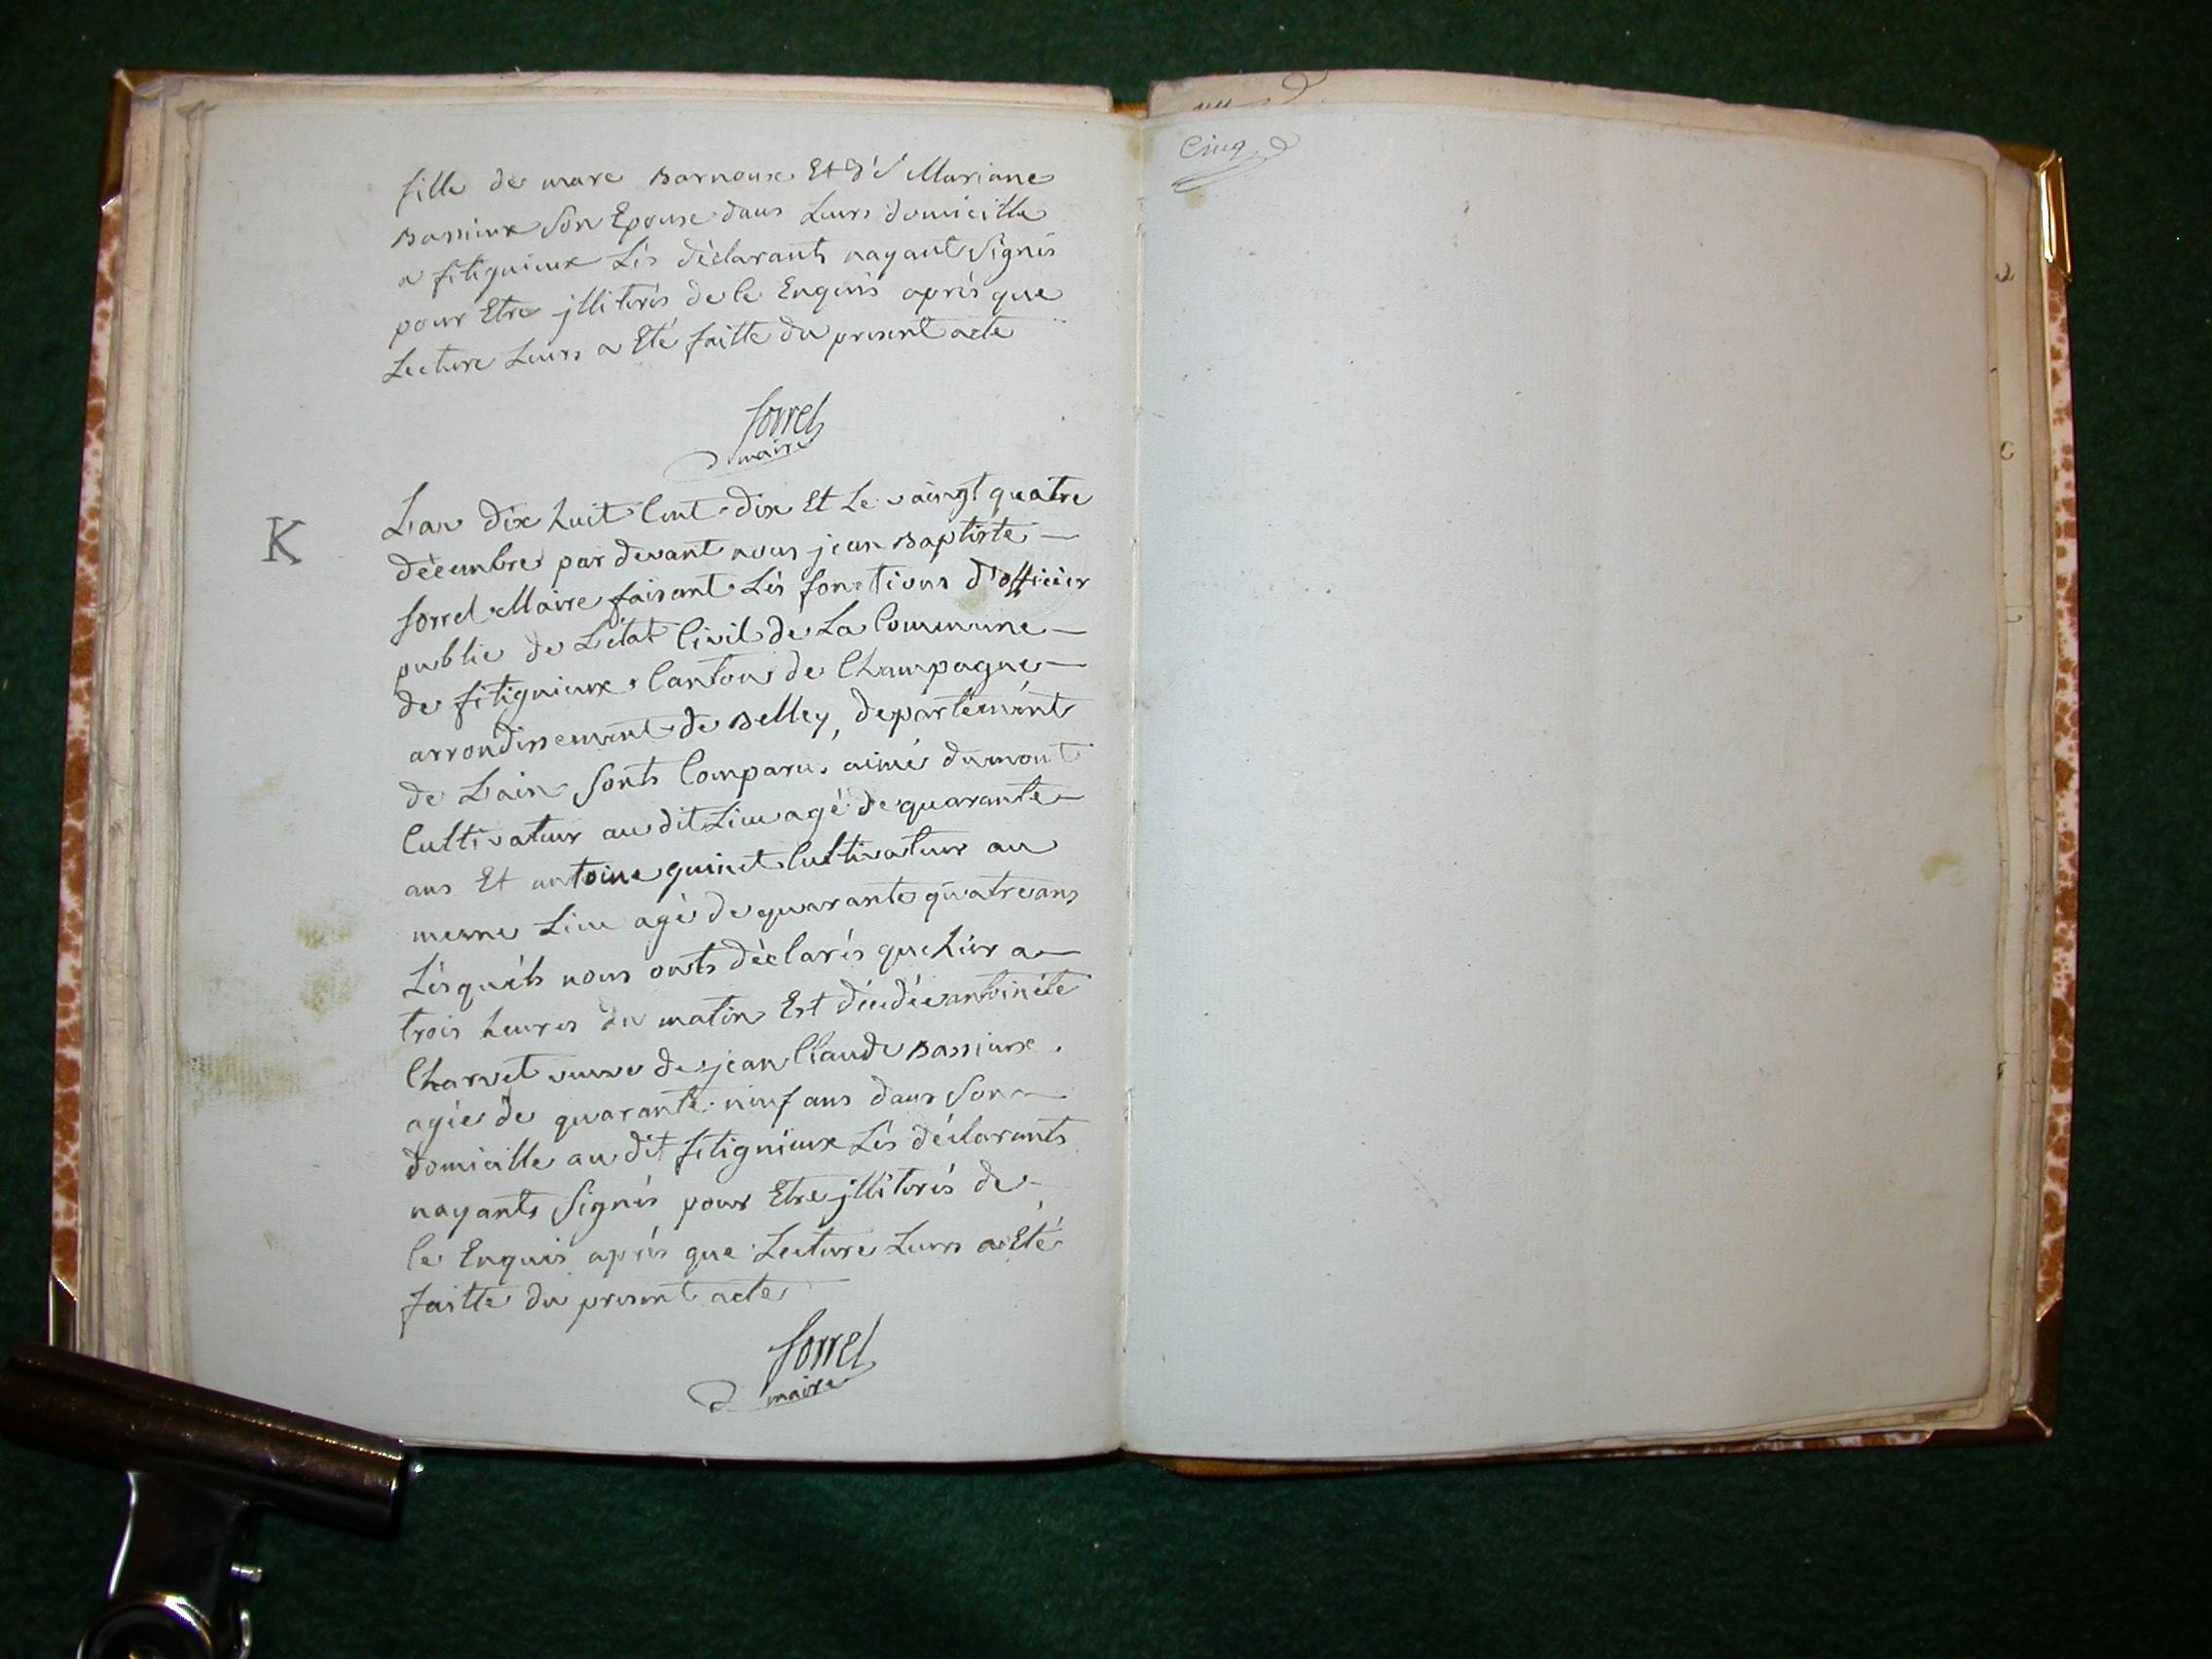 fille de marc Barnoux Et dé Mariane
Bassieux Son Epouse dans Leurs domicille
a fitignieux Lés déclarants nayant Signés
pour Etre jllitérés de ce Enquis aprés que
Lecture Leurs a Eté faitte du present acte
forrel
maire
K
L'an dix huit Cent dix Et Le vaingt quatre
décembre par devant nous jean Baptiste
forrel Maire faisant Lés fonctions d'officier
public de L'état Civil de La Commune
de fitignieux Canton de Champagne
arrondissement de Belley, departemént
de L'ain Sonts Comparu, aimé dumont
Cultivateur au dit Lieu agé de quarante
ans Et antoine guinet Cultivateur au
meme Lieu agé de quarante quatre ans
Lésquéls nous onts déclarés que hier a
trois heures du matin Est décédée antoinéte
Charvet veuve de jean Claude Bassieux.
agée de quarante neuf ans dans Son
domicille au dit fitignieux Lés déclarants
nayants Signés pour Etre jllitérés de
ce Enquis aprés que Lecture Leurs a Eté
faitte du present acte
forrel
maire
Cinq